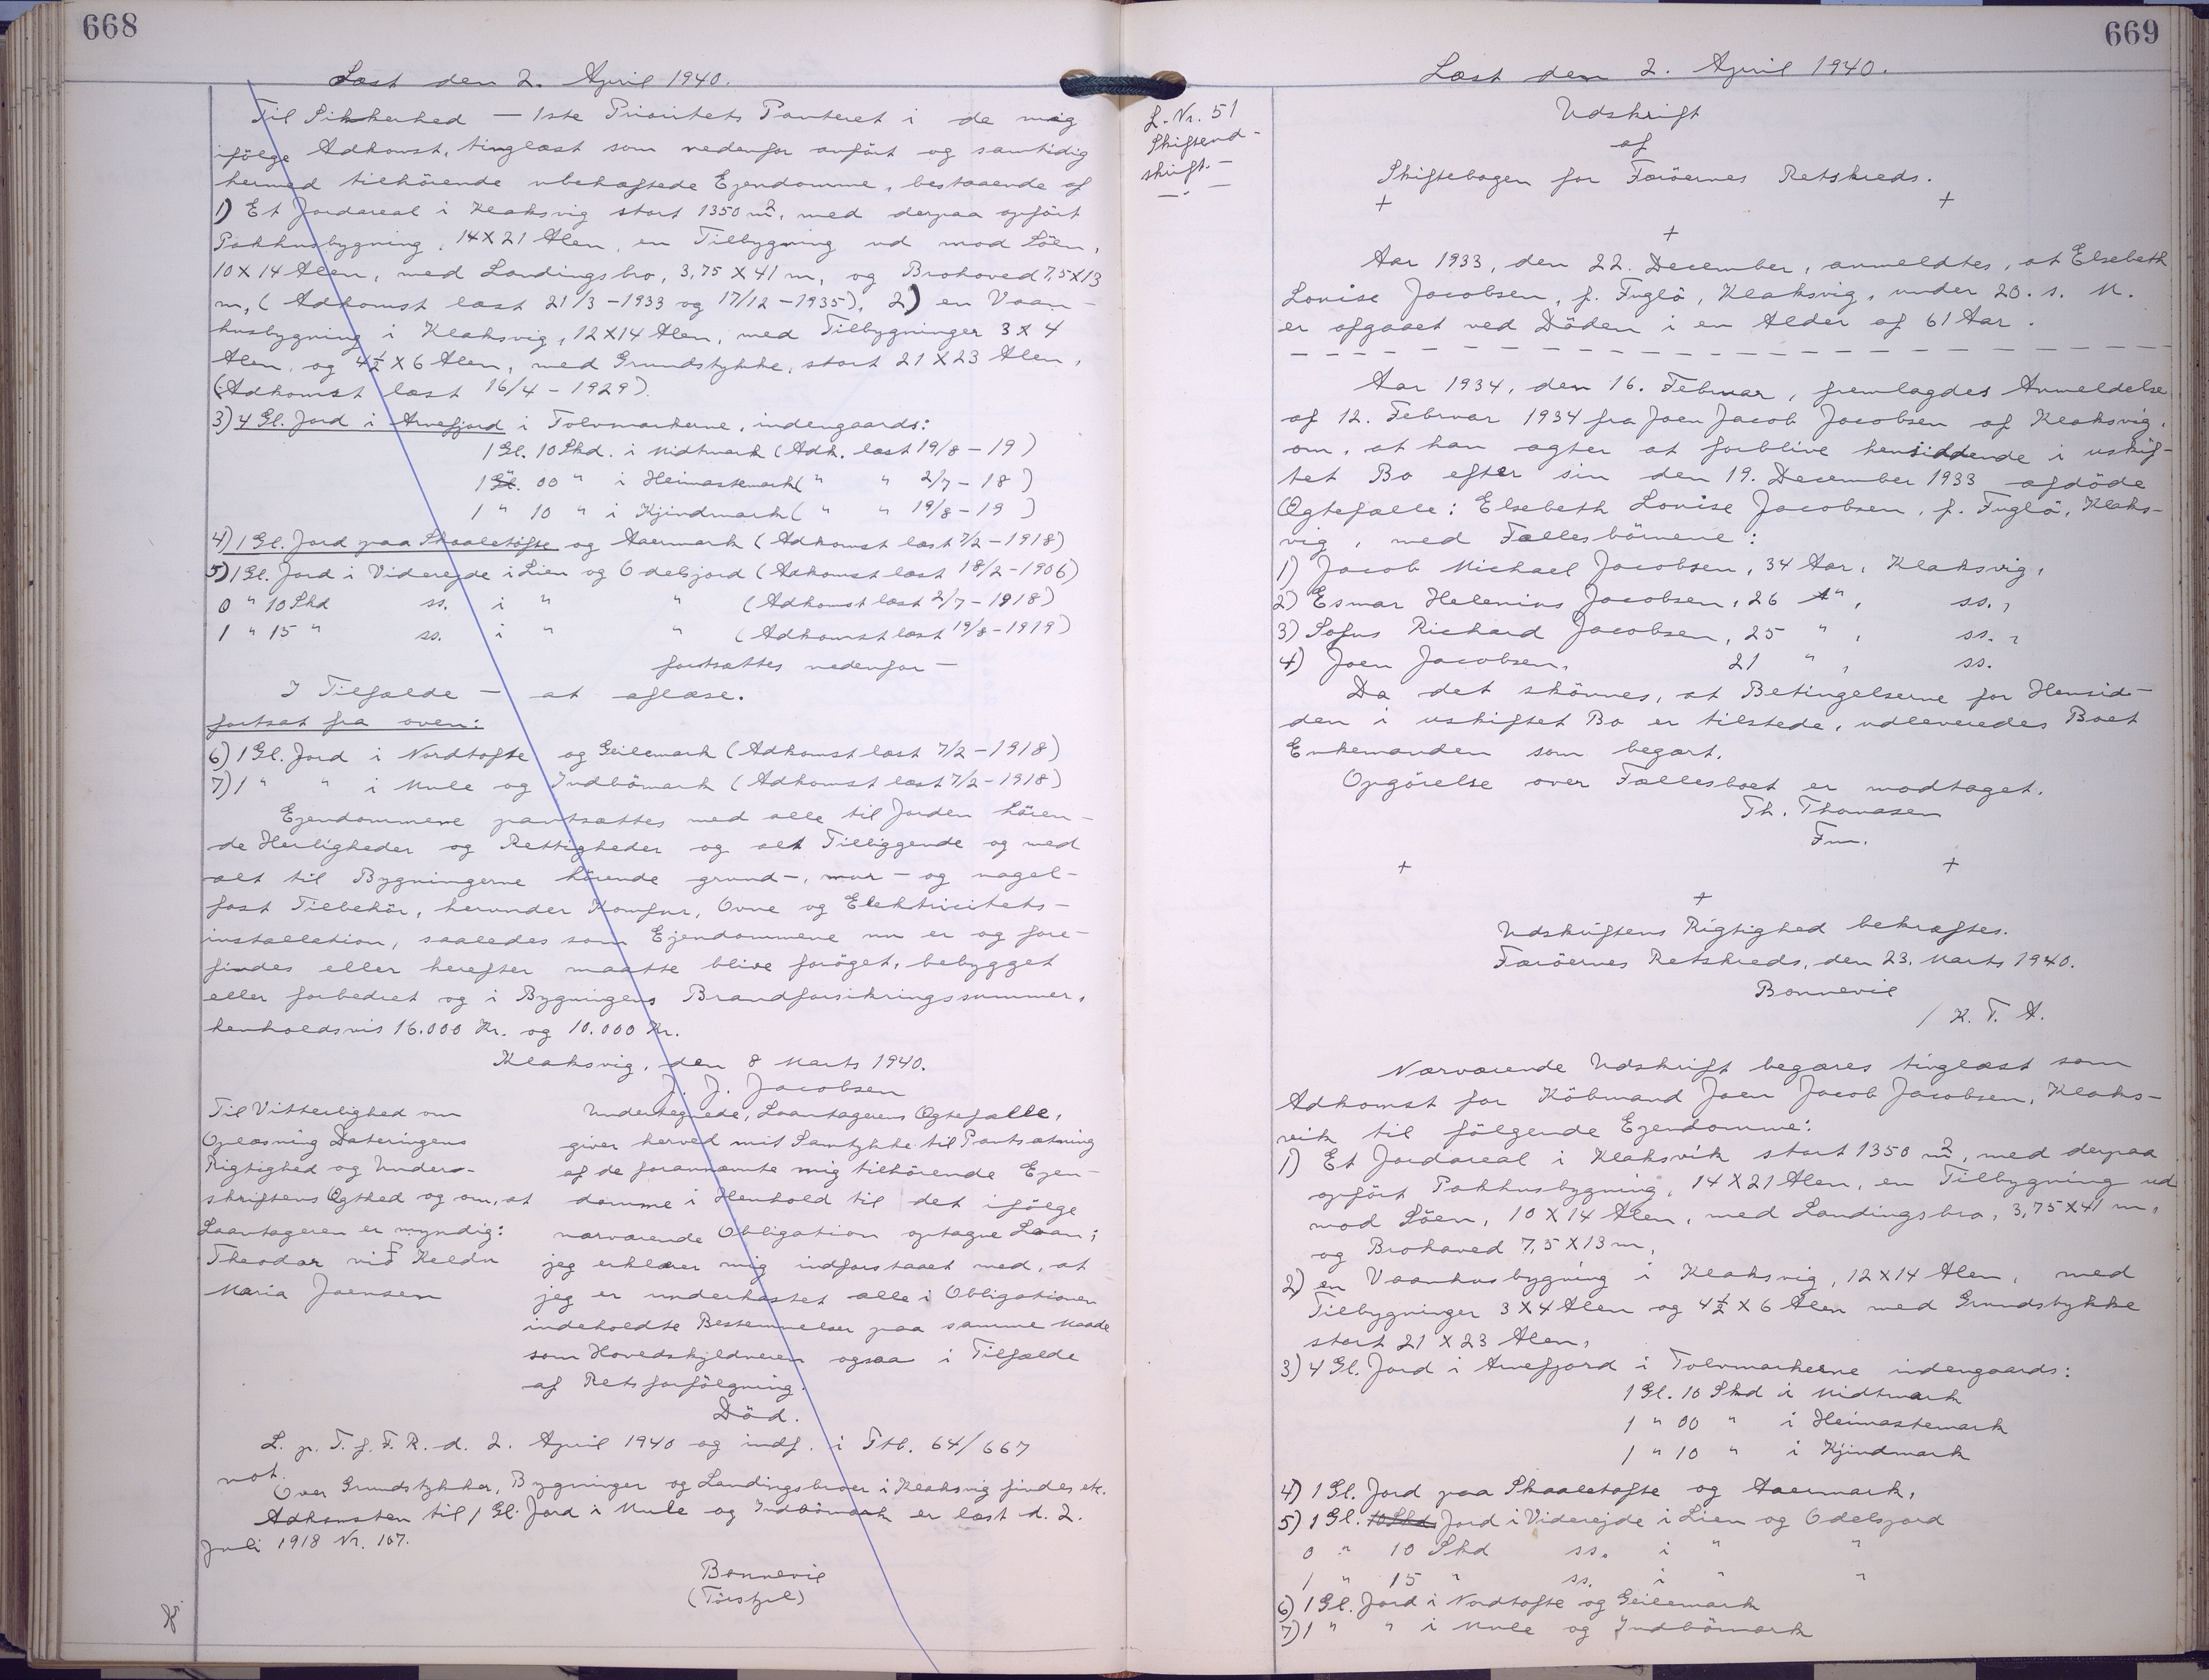 668
Læst den 2. April 1940.
Til Sikkerhed — 1ste Prioritets Panteret i de mig
ifölge Adkomst, tinglæst som nedenfor anfört og samtidig
hermed tilhörende ubehæftede Ejendomme, bestaaende af
1) Et Jordareal i Klaksvig stort 1350 m², med derpaa opfört
Pakhusbygning, 14 X 21 Alen, en Tilbygning ud mod Söen,
10 X 14 Alen, med Landingsbro, 3,75 X 41 m, og Brohoved 7,5 X 13
m, (Adkomst læst 21/3 - 1933 og 17/12 - 1935), 2) en Vaan-
husbygning i Klaksvig, 12 X 14 Alen, med Tilbygninger 3 X 4
Alen, og 4½ X 6 Alen, med Grundstykke, stort 21 X 23 Alen,
(Adkomst læst 16/4 - 1929).
3) 4 Gl. Jord i Arnefjord i Tolvmarkerne, indengaards:
1 Gl. 10 Skd. i Midtmark (Adk. læst 19/8 - 19)
1 Gl. 00 " i Heimastemark ( " " 2/7 - 18 )
1 " 10 " i Kjindmark ( " " 19/8 - 19 )
4) 1 Gl. Jord paa Skaaletofte og Aaermark (Adkomst læst 7/2 - 1918)
5) 1 Gl. Jord i Viderejde i Lien og Odelsjord (Adkomst læst 18/2 - 1906)
0 " 10 Skd ss. i " " (Adkomst læst 2/7 - 1918)
1 " 15 " ss. i " " (Adkomst læst 19/8 - 1919)
fortsættes nedenfor —
I Tilfælde — at aflæse.
fortsat fra oven:
6) 1 Gl. Jord i Nordtofte og Geilemark (Adkomst læst 7/2 - 1918)
7) 1 " " i Mule og Indbömark (Adkomst læst 7/2 - 1918)
Ejendommene pantsættes med alle til Jorden hören-
de Herligheder og Rettigheder og alt Tilliggende og med
alt til Bygningerne hörende grund-, mur- og nagel-
fast Tilbehör, herunder Komfur, Ovne og Elektricitets-
installation, saaledes som Ejendommene nu er og fore-
findes eller herefter maatte blive foröget, bebygget
eller forbedret og i Bygningens Brandforsikringssummer,
henholdsvis 16.000 Kr. og 10.000 Kr.
Klaksvig, den 8 Marts 1940.
J. J. Jacobsen
Til Vitterlighed om
Oplæsning Dateringens
Rigtighed og Under-
skriftens Ægthed og om, at
Laantageren er myndig:
Theodor við Keldu
Maria Joensen
Undertegnede, Laantagerens Ægtefælle,
giver herved mit Samtykke til Pantsætning
af de forannævnte mig tilhörende Ejen-
domme i Henhold til det ifölge
nærværende Obligation optagne Laan;
jeg erklærer mig indforstaaet med, at
jeg er underkastet alle i Obligationen
indeholdte Bestemmelser paa samme Maade
som Hovedskyldneren ogsaa i Tilfælde
af Retsforfölgning.
Död.
L. p. T. f. F. R. d. 2. April 1940 og indf. i Ttb. 64/667
not.
Over Grundstykker, Bygninger og Landingsbroer i Klaksvig findes etc.
Adkomsten til 1 Gl. Jord i Mule og Indbömark er læst d. 2.
Juli 1918 Nr. 107.
Bonnevie
(Törsfjel)
669
Læst den 2. April 1940.
L. Nr. 51
Skifteud-
skrift.-
Udskrift
af
Skiftebogen for Færöernes Retskreds.
+ + +
Aar 1933, den 22. December, anmeldtes, at Elsebeth
Lovise Jacobsen, f. Fuglö, Klaksvig, under 20. s. M.
er afgaaet ved Döden i en Alder af 61 Aar.
Aar 1934, den 16. Februar, fremlagdes Anmeldelse
af 12. Februar 1934 fra Joen Jacob Jacobsen af Klaksvig,
om, at han agter at forblive hensiddende i uskif-
tet Bo efter sin den 19. December 1933 afdöde
Ægtefælle: Elsebeth Lovise Jacobsen, f. Fuglö, Klaks-
vig, med Fællesbörnene:
1) Jacob Michael Jacobsen, 34 Aar, Klaksvig,
2) Esmar Helenius Jacobsen, 26 " , ss.,
3) Sofus Richard Jacobsen, 25 " , ss.,
4) Joen Jacobsen, 21 " , ss.
Da det skönnes, at Betingelserne for Hensid-
den i uskiftet Bo er tilstede, udleveredes Boet
Enkemanden som begært.
Opgörelse over Fællesboet er modtaget.
Th. Thomasen
Fm.
+ + +
Udskriftens Rigtighed bekræftes.
Færöernes Retskreds, den 23. Marts 1940.
Bonnevie
/ K. T. A.
Nærværende Udskrift begæres tinglæst som
Adkomst for Köbmand Joen Jacob Jacobsen, Klaks-
vik til fölgende Ejendomme:
1) Et Jordareal i Klaksvik stort 1350 m², med derpaa
opfört Pakhusbygning, 14 X 21 Alen, en Tilbygning ud
mod Söen, 10 X 14 Alen, med Landingsbro, 3,75 X 41 m,
og Brohoved 7,5 X 13 m,
2) en Vaanhusbygning i Klaksvig, 12 X 14 Alen, med
Tilbygninger 3 X 4 Alen og 4½ X 6 Alen med Grundstykke
stort 21 X 23 Alen,
3) 4 Gl. Jord i Arnefjord i Tolvmarkerne indengaards:
1 Gl. 10 Skd i Midtmark
1 " 00 " i Heimastemark
1 " 10 " i Kjindmark
4) 1 Gl. Jord paa Skaaletofte og Aaermark,
5) 1 Gl. 10 Skd. Jord i Viderejde i Lien og Odelsjord
0 " 10 Skd ss. i " "
1 " 15 " ss. i " "
6) 1 Gl. Jord i Nordtofte og Geilemark
7) 1 " " i Mule og Indbömark